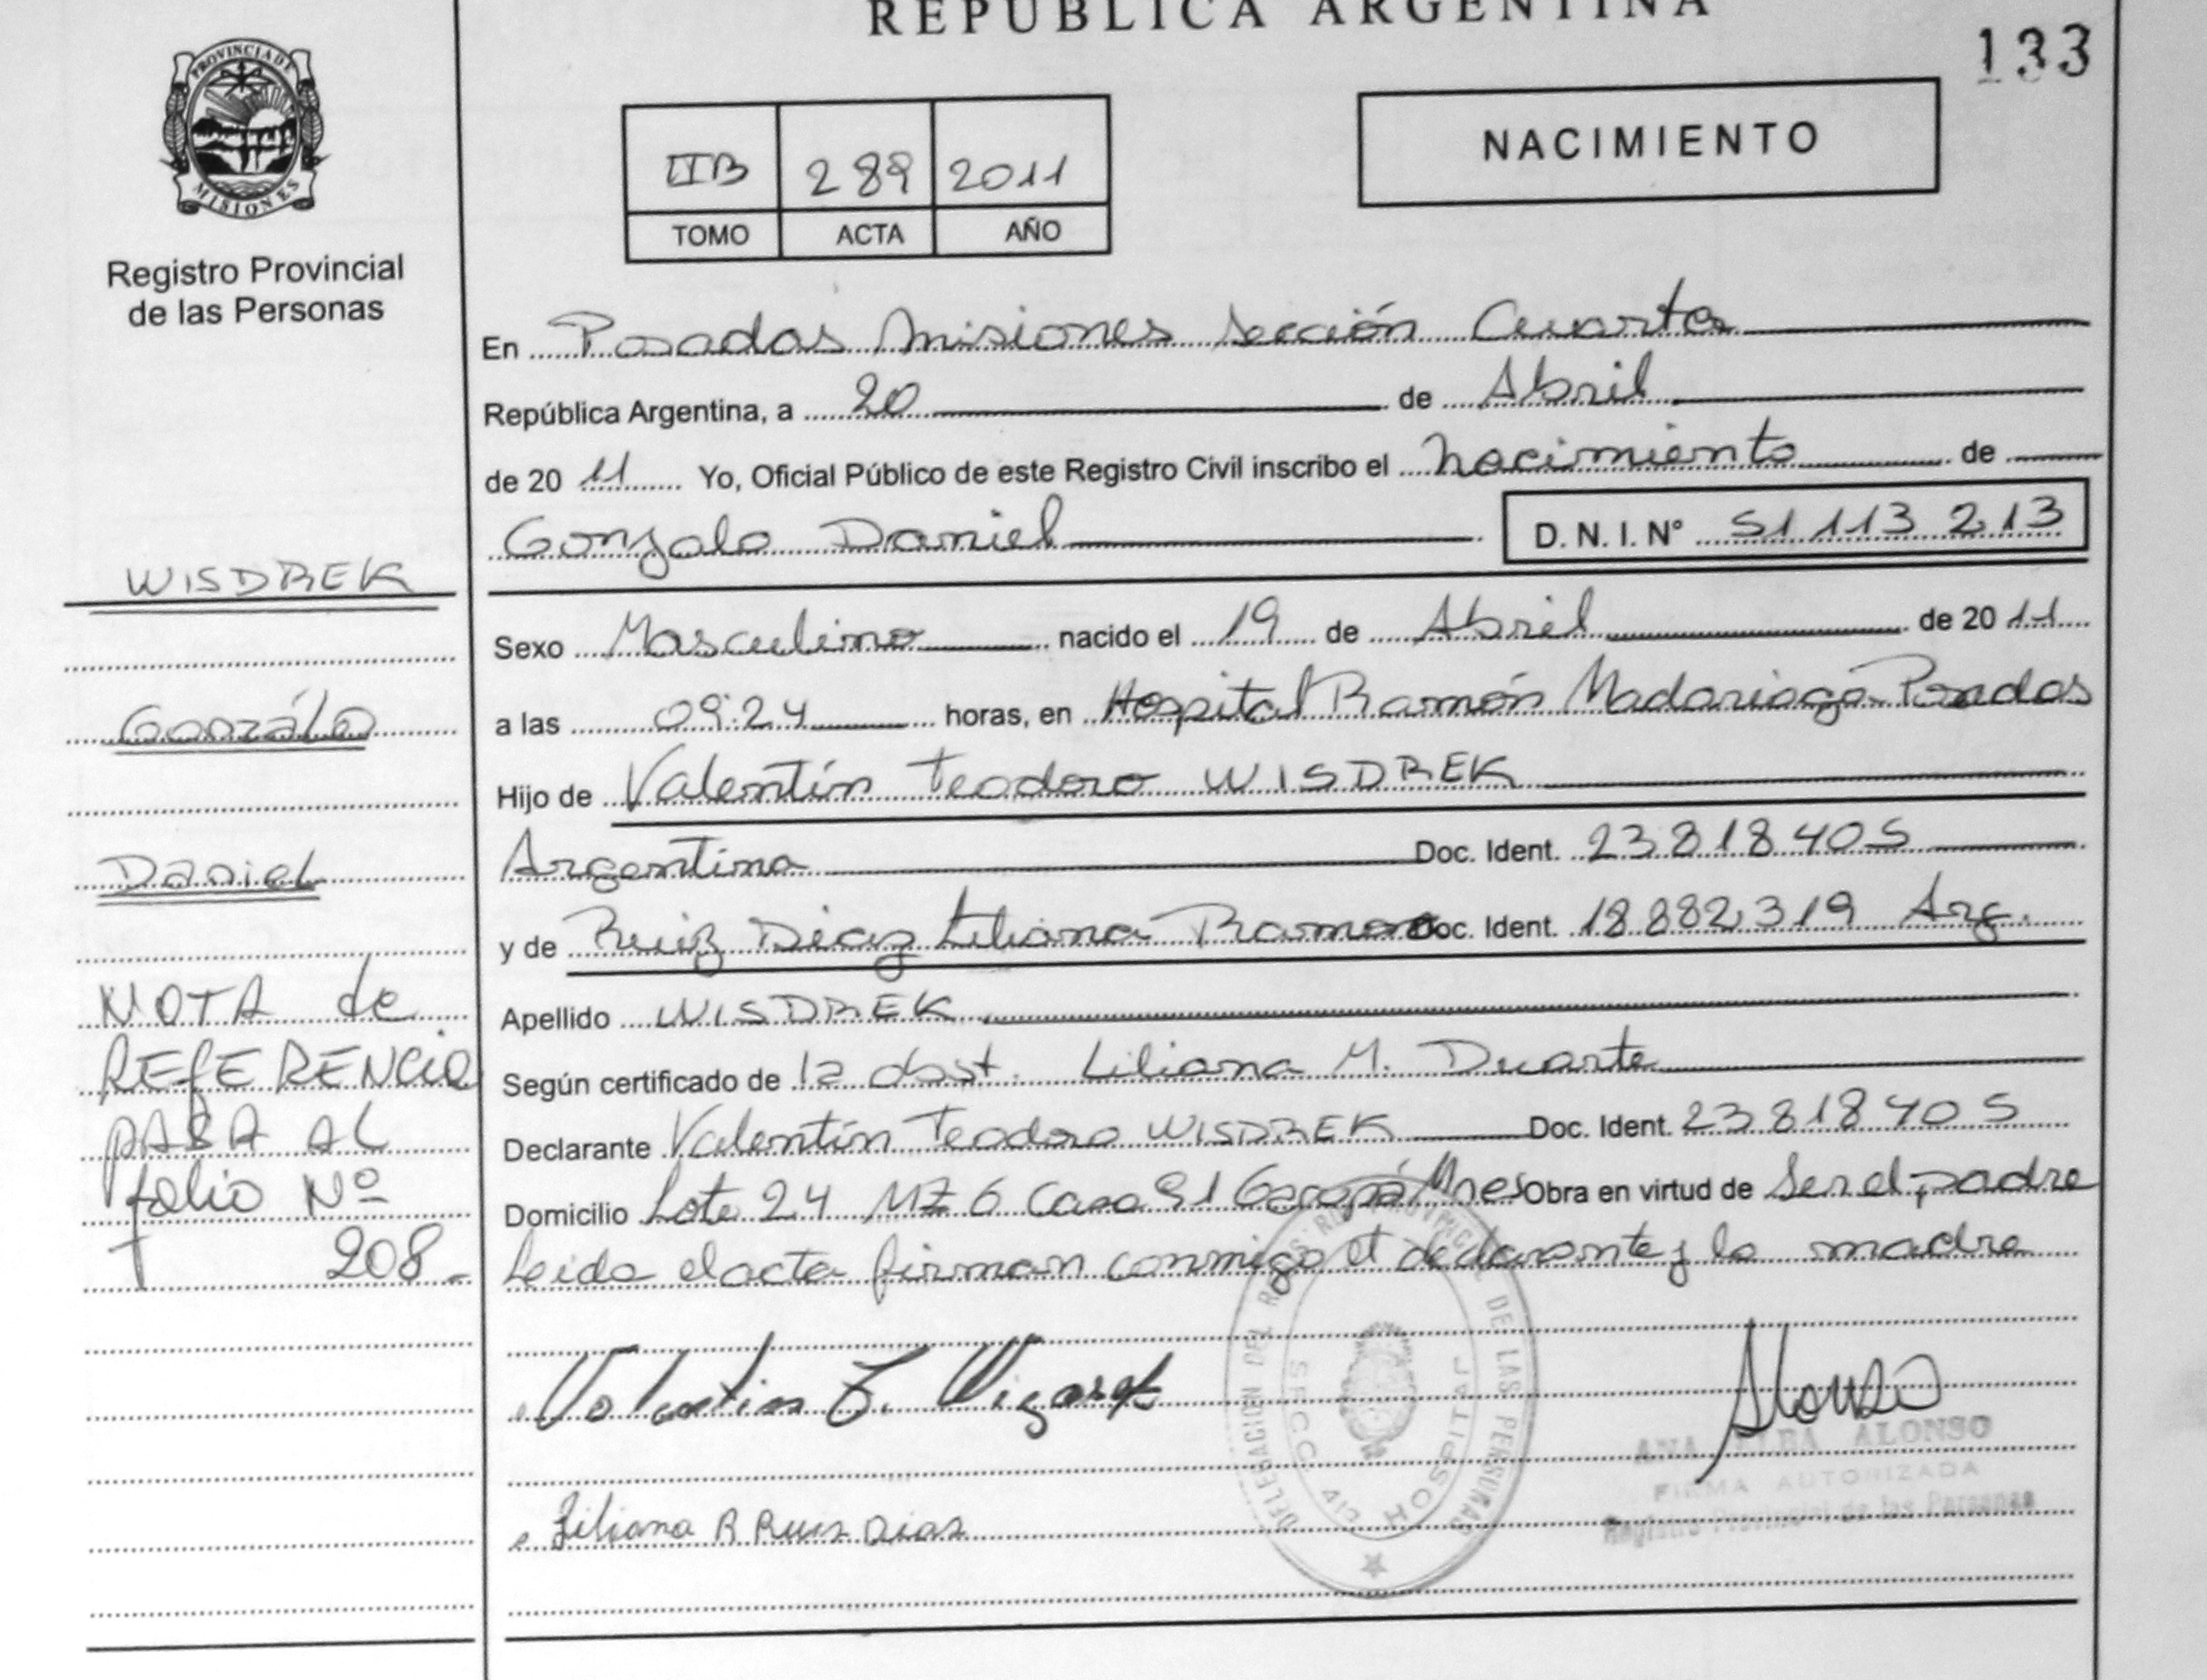 REPÚBLICA ARGENTINA
133
PROVINCIA DE
MISIONES
Registro Provincial
de las Personas
IIB 289 2011
TOMO ACTA AÑO
NACIMIENTO
En Posadas Misiones Sección Cuarta
República Argentina, a 20 de Abril
de 20 11 Yo, Oficial Público de este Registro Civil inscribo el Nacimiento de
Gonzalo Daniel D. N. I. N° 51 113 213
Sexo Masculino nacido el 19 de Abril de 20 11
a las 09:24 horas, en Hospital Ramón Madariaga Posadas
Hijo de Valentín Teodoro WISDREK
Argentina Doc. Ident. 23818405
y de Ruiz Díaz Liliana Ramona Doc. Ident. 18882319 Arg.
Apellido WISDREK
Según certificado de la obst. Liliana M. Duarte
Declarante Valentín Teodoro WISDREK Doc. Ident. 23818405
Domicilio Lote 24 MZ 6 Casa 91 Garupá Mnes Obra en virtud de Ser el padre
Leida el acta firman conmigo el declarante y la madre
WISDREK
Gonzálo
Daniel
NOTA de
REfERENCia
PASA AL
folio Nº
208
Valentin T.
Liliana R Ruis Dias
DELEGACION DEL REGISTRO PROVINCIAL DE LAS PERSONAS
SECC. 4ta HOSPITAL
Alonso
ANA ALONSO
FIRMA AUTORIZADA
Registro Provincial de las Personas